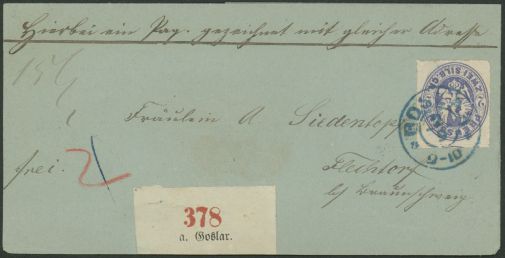 Hierbei ein Pag. gezeichnet mit gleicher Adresse
Fräulein A Siedentopf
Flechtorf
b/ Braunschweig.
frei.
2
378
a. Goslar.
ZWEI SILB. GR.
9-10